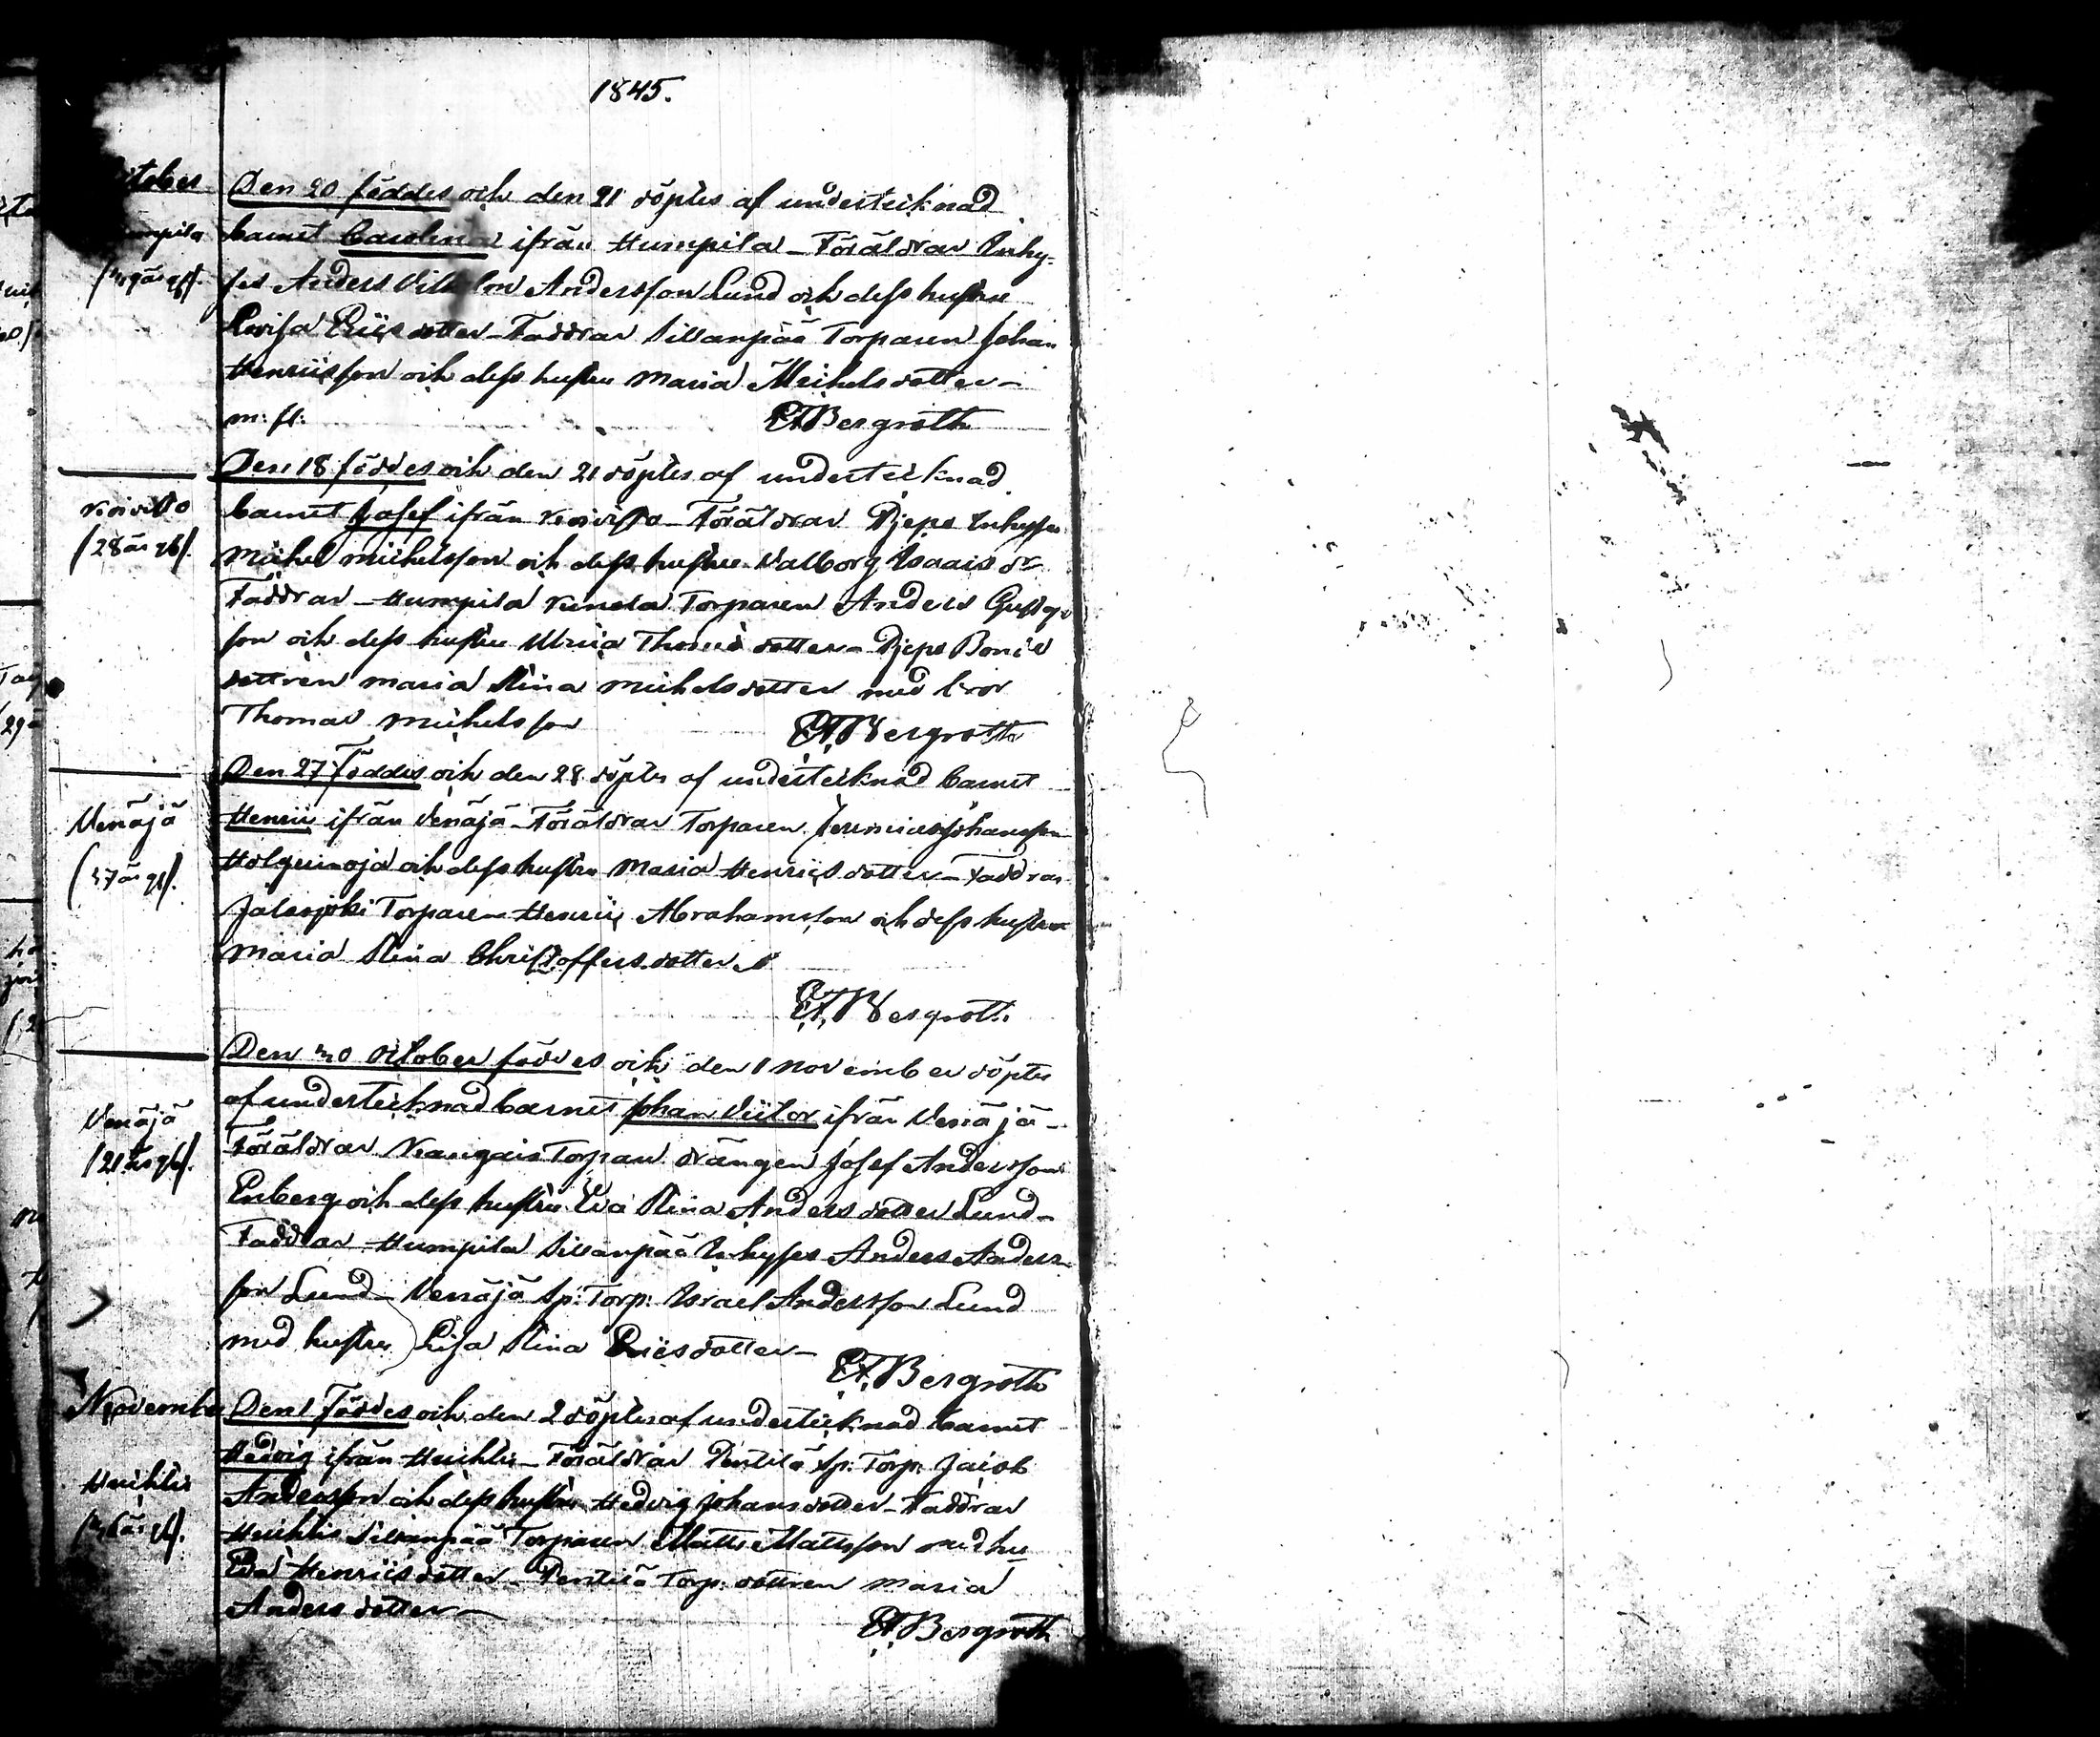 1845.
October
Den 20 föddes och den 21 döptes af undertecknad
barnet Carolina ifrån Humpila – Föräldrar Inhy-
ses Anders Andersson Lund och dess hustru
Lovisa Ericsdotter – Faddrar Sillanpää Torparen Johan
Henricsson och dess hustru Maria Michelsdotter –
m: fl: Bergroth
Koivisto
(28 år gl).
Den 18 föddes och den 21 döptes af undertecknad
barnet Josef ifrån Koivisto – Föräldrar Inhyses
Michel Michelsson och dess hustru Valborg Isaacs dr
Faddrar – Humpila Torparen Anders Gustafs-
son och dess hustru Ulrica Thomasdotter –
dottren Maria Stina Michelsdotter med bror
Thomas Michelsson Bergroth
Venäjä
(37 år gl).
Den 27 Föddes och den 28 döptes af undertecknad barnet
Henric ifrån Venäjä – Föräldrar Torparen Jeremias Johansson
och dess hustru Maria Henricsdotter – Faddrar
Torparen Henric Abrahamsson och dess hustru
Maria Stina Christoffersdotter
Bergroth
Venäjä
(21 år gl).
Den 30 October föddes och den 1 November döptes
af undertecknad barnet Johan Victor ifrån Venäjä –
Föräldrar Torpare drängen Josef Andersson
Enberg och dess hustru Eva Stina Andersdotter Lund –
Faddrar – Humpila Sillanpää Inhyses Anders Anders-
son Lund – Venäjä Sp: Torp: Israel Andersson Lund
med hustru Lisa Stina Ericsdotter –
Bergroth
November
Huichtis
Den 1 Föddes och den 2 döptes af undertecknad barnet
Hedvig ifrån Huichtis – Föräldrar Pentilä Sp: Torp: Jacob
Andersson och dess hustru Hedvig Johansdotter – Faddrar
Huichtis Sillanpää Torparen Matts Mattsson med hu
Eva Henricsdotter – Pentilä Torp: dottren Maria
Andersdotter –
Bergroth